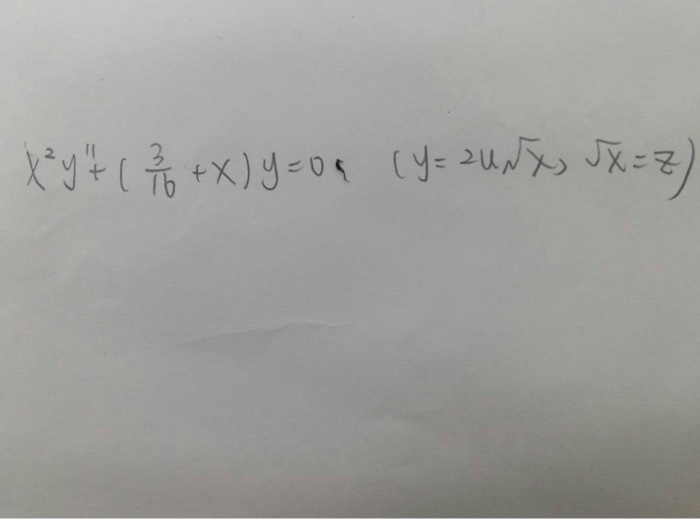 x²y″+(3/16+x)y=0, (y=2u√x, √x=z)